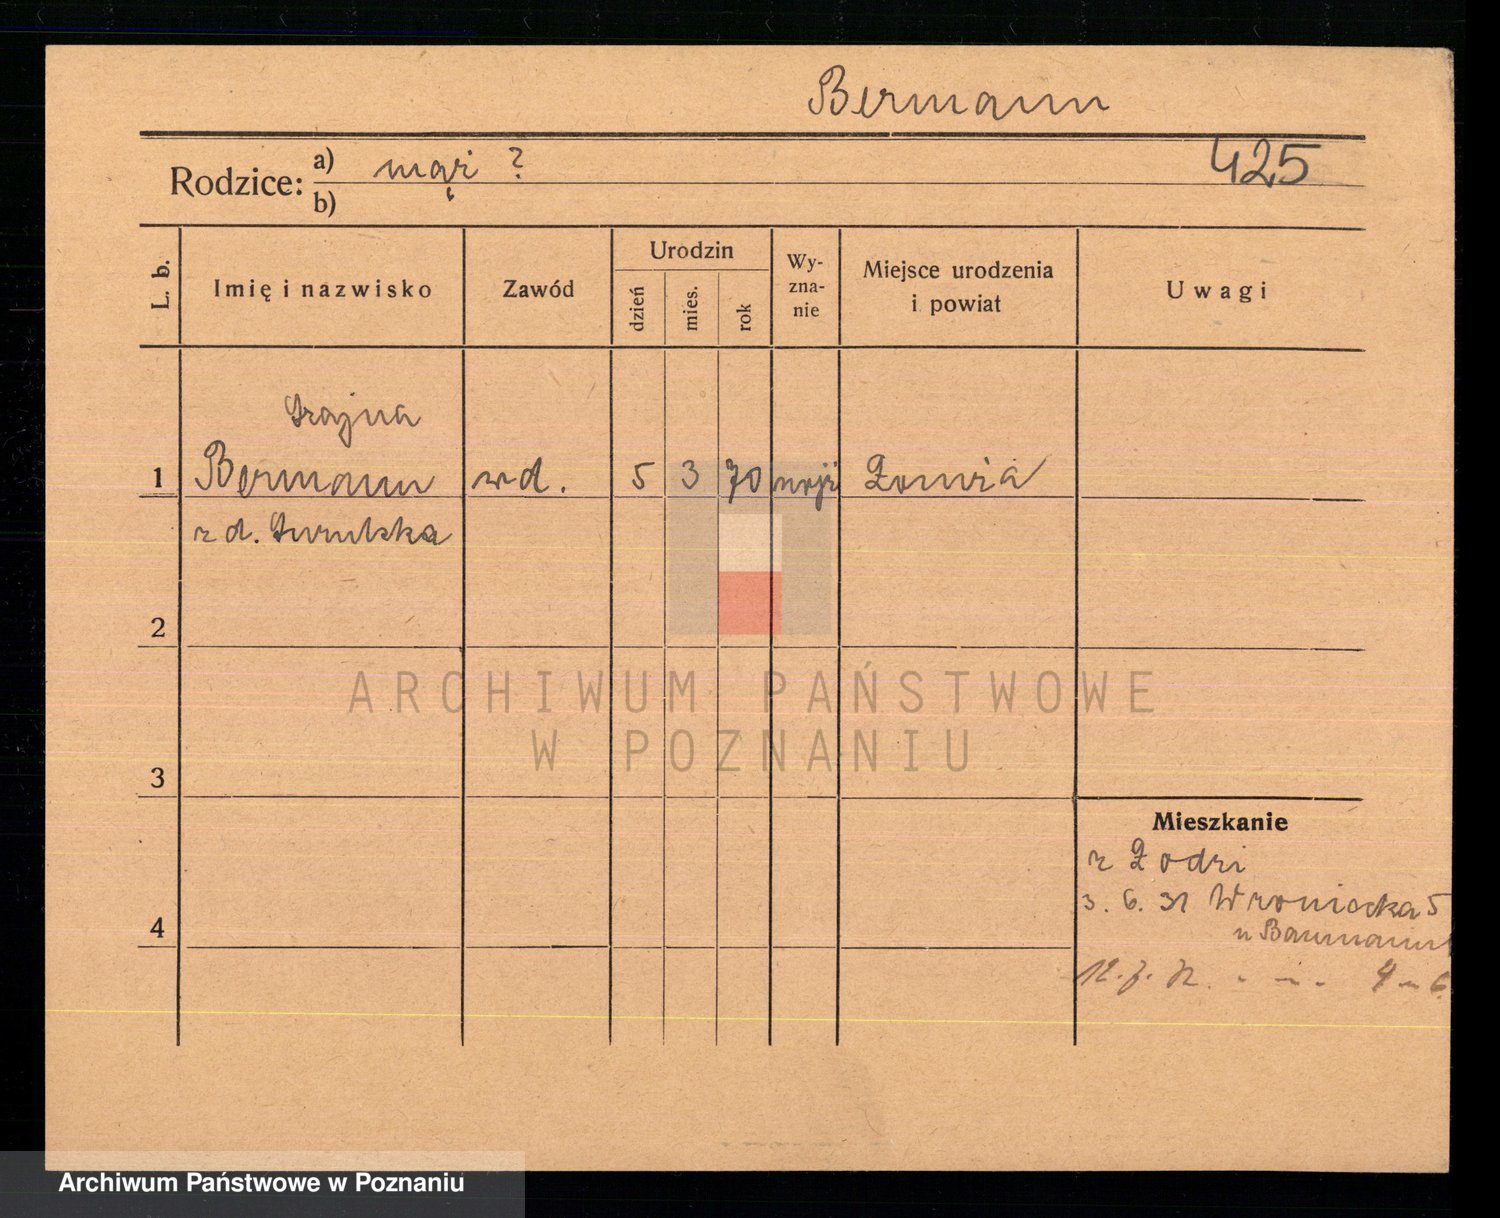 Bermann
425
Rodzice: a) mąż ?
b)
L. b.
Imię i nazwisko
Zawód
Urodzin
dzień
mies.
rok
Wy-
zna-
nie
Miejsce urodzenia
i powiat
Uwagi
Frajna
1 Bermann wd. 5 3 70 mojż Łomża
z d.
2
ARCHIWUM PAŃSTWOWE
W POZNANIU
3
Mieszkanie
z Łodzi
3. 6. 31 Wroniecka 5
u Baumann
4
12. 7. 32. " - " - 4 - 6.
Archiwum Państwowe w Poznaniu